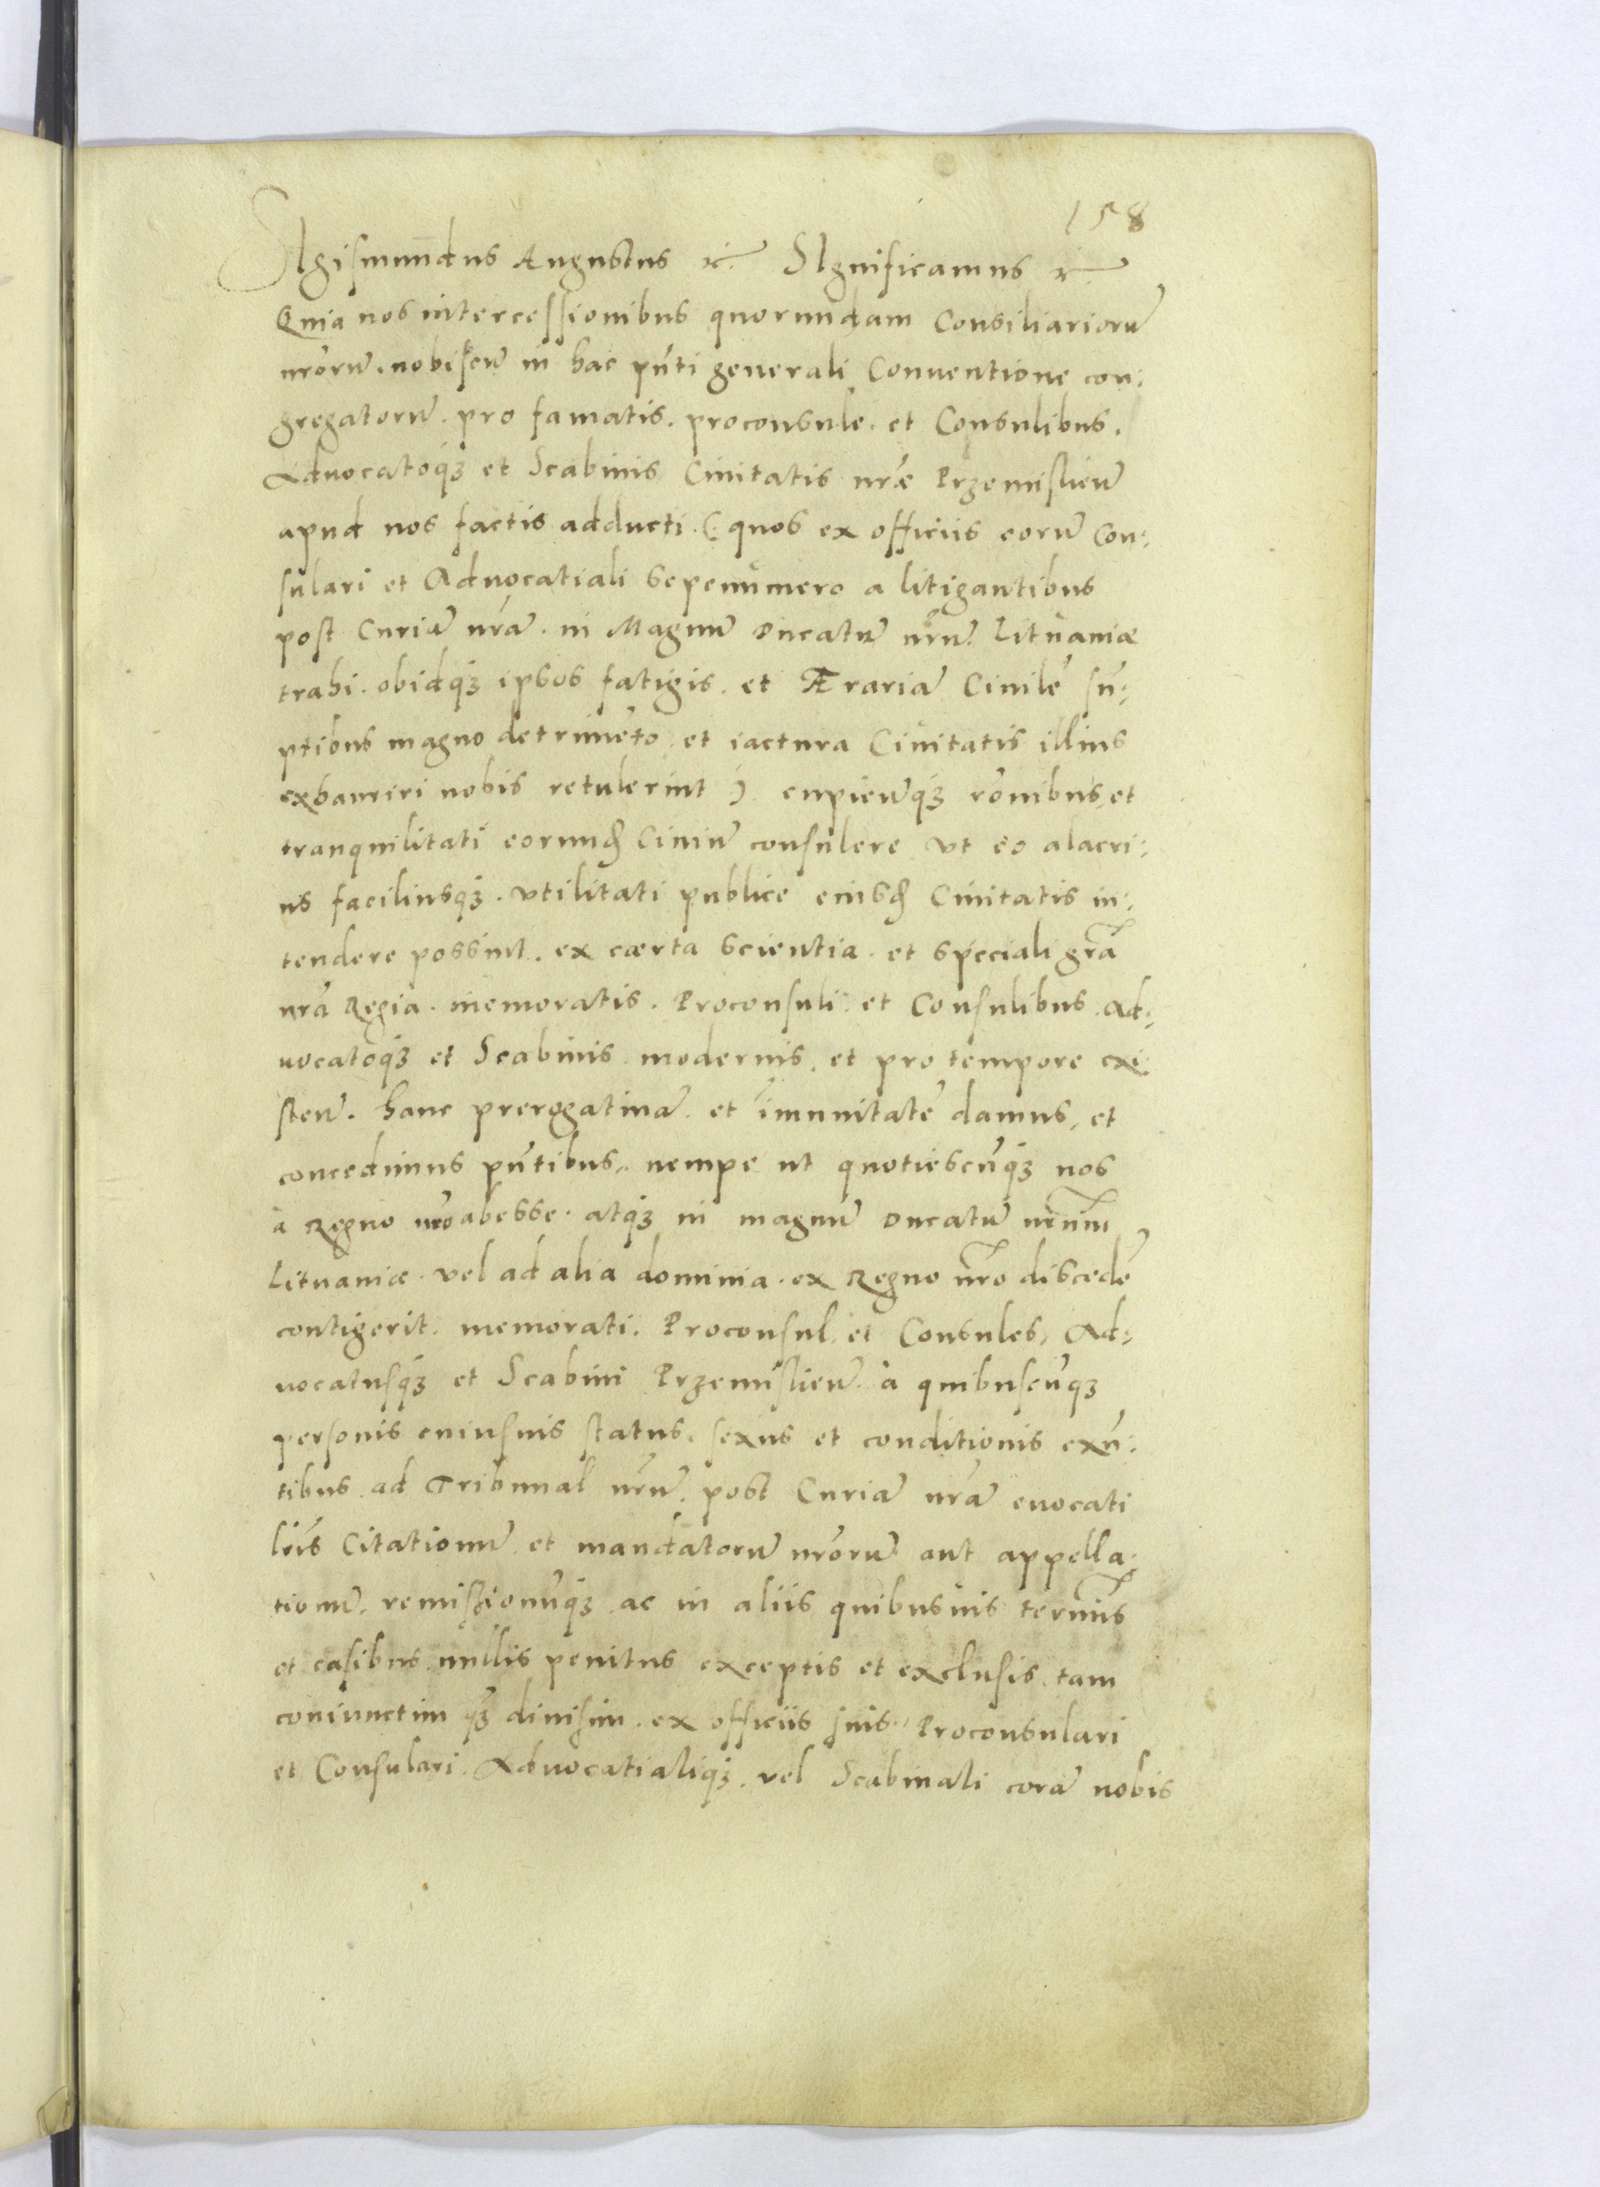 158
SIgismundus Augustus &c. SIgnificamus &c.
Quia nos intercessionibus quorundam Consiliariorū
nr̄orū. nobiscū in hac pn̄ti generali Conuentione con:
gregatorū. pro famatis. proconsule. et Consulibus.
Aduocatoq3 et Scabinis Ciuitatis nr̄æ Przemislien̄
apud nos factis adducti. (: quos ex officiis eorū Con:
sulari et Aduocatiali sepenumero a litigantibus
post Curiā nr̄ā. in Magnū Ducatū nr̄ū. Lituaniæ
trahi. obidq3 ipsos fatigis. et Ærariā Ciuilē sū:
ptibus magno detrimēto et iactura Ciuitatis illius
exhauriri nobis retulerint :) cupien̄q3 rōnibus, et
tranquilitati eorund̄ Ciuiū consulere vt eo alacri:
us faciliusq3. vtilitati publice eiusd̄ Ciuitatis in:
tendere possint. ex cærta scientia. et speciali gr̄a
nr̄a Regia. memoratis. Proconsuli et Consulibus Ad:
uocatoq3 et Scabinis modernis. et pro tempore exi:
sten̄. hanc prerogatiuā. et imunitatē damus, et
concedimus pn̄tibus,. nempe ut quotiescūq3 nos
à Regno nr̄o abesse. atq3 in magnū Ducatū nr̄um
Lituaniæ. vel ad alia dominia. ex Regno nr̄o discedē
contigerit. memorati. Proconsul et Consules, Ad:
uocatusq3 et Scabini Przemislien̄. à quibuscūq3
personis cuiusuis status. sexus et conditionis exn̄:
tibus ad Tribunal nr̄ū. post Curiā nr̄ā euocati
lr̄is Citationū et mandatorū nr̄orū aut appella:
tionū. remissionūq3 ac in aliis quibusuis termīs
et casibus nullis penitus exceptis et exclusis. tam
coniunctim q3 diuisim. ex officiis suis. Proconsulari
et Consulari. Aduocatialiq3. vel Scabinali corā nobis